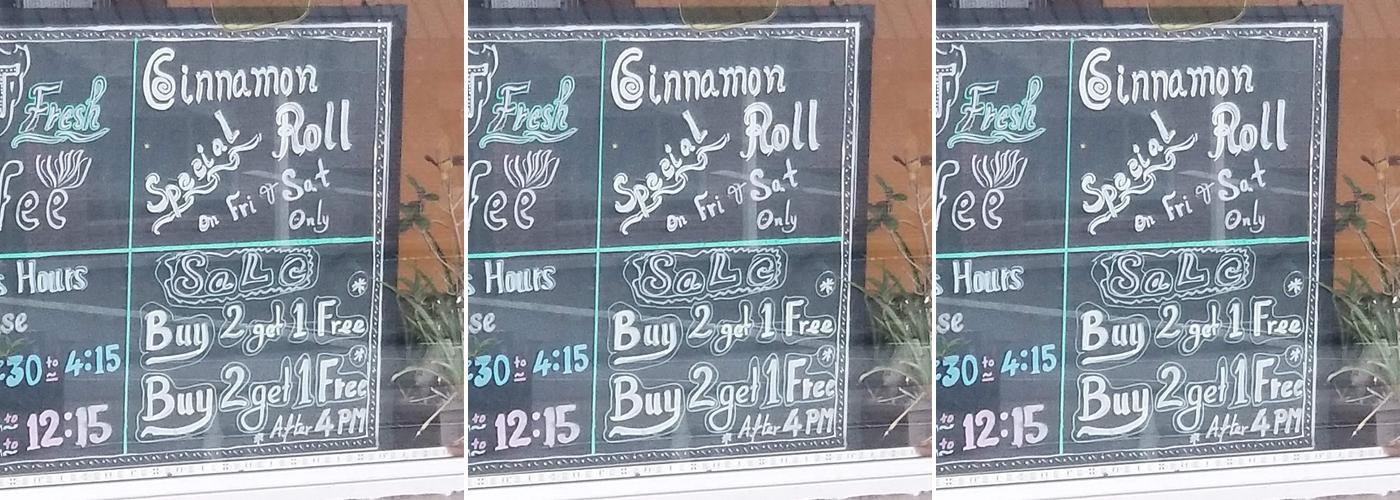 Fresh
fee
s Hours
se
:30 to 4:15
to
to 12:15
Cinnamon
Roll
Special
on Fri & Sat
Only
SaLe
*
Buy 2 get 1 Free
*
Buy 2 get 1 Free
* After 4 PM
Fresh
fee
s Hours
se
:30 to 4:15
to
to 12:15
Cinnamon
Roll
Special
on Fri & Sat
Only
SaLe
*
Buy 2 get 1 Free
*
Buy 2 get 1 Free
* After 4 PM
Fresh
fee
s Hours
se
:30 to 4:15
to
to 12:15
Cinnamon
Roll
Special
on Fri & Sat
Only
SaLe
*
Buy 2 get 1 Free
*
Buy 2 get 1 Free
* After 4 PM